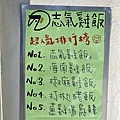 志氣雞飯
超人氣排行榜
No1. 志氣雞飯
No2. 海南雞飯
No3. 椒麻雞飯
No4. 打拋豬飯
No5.